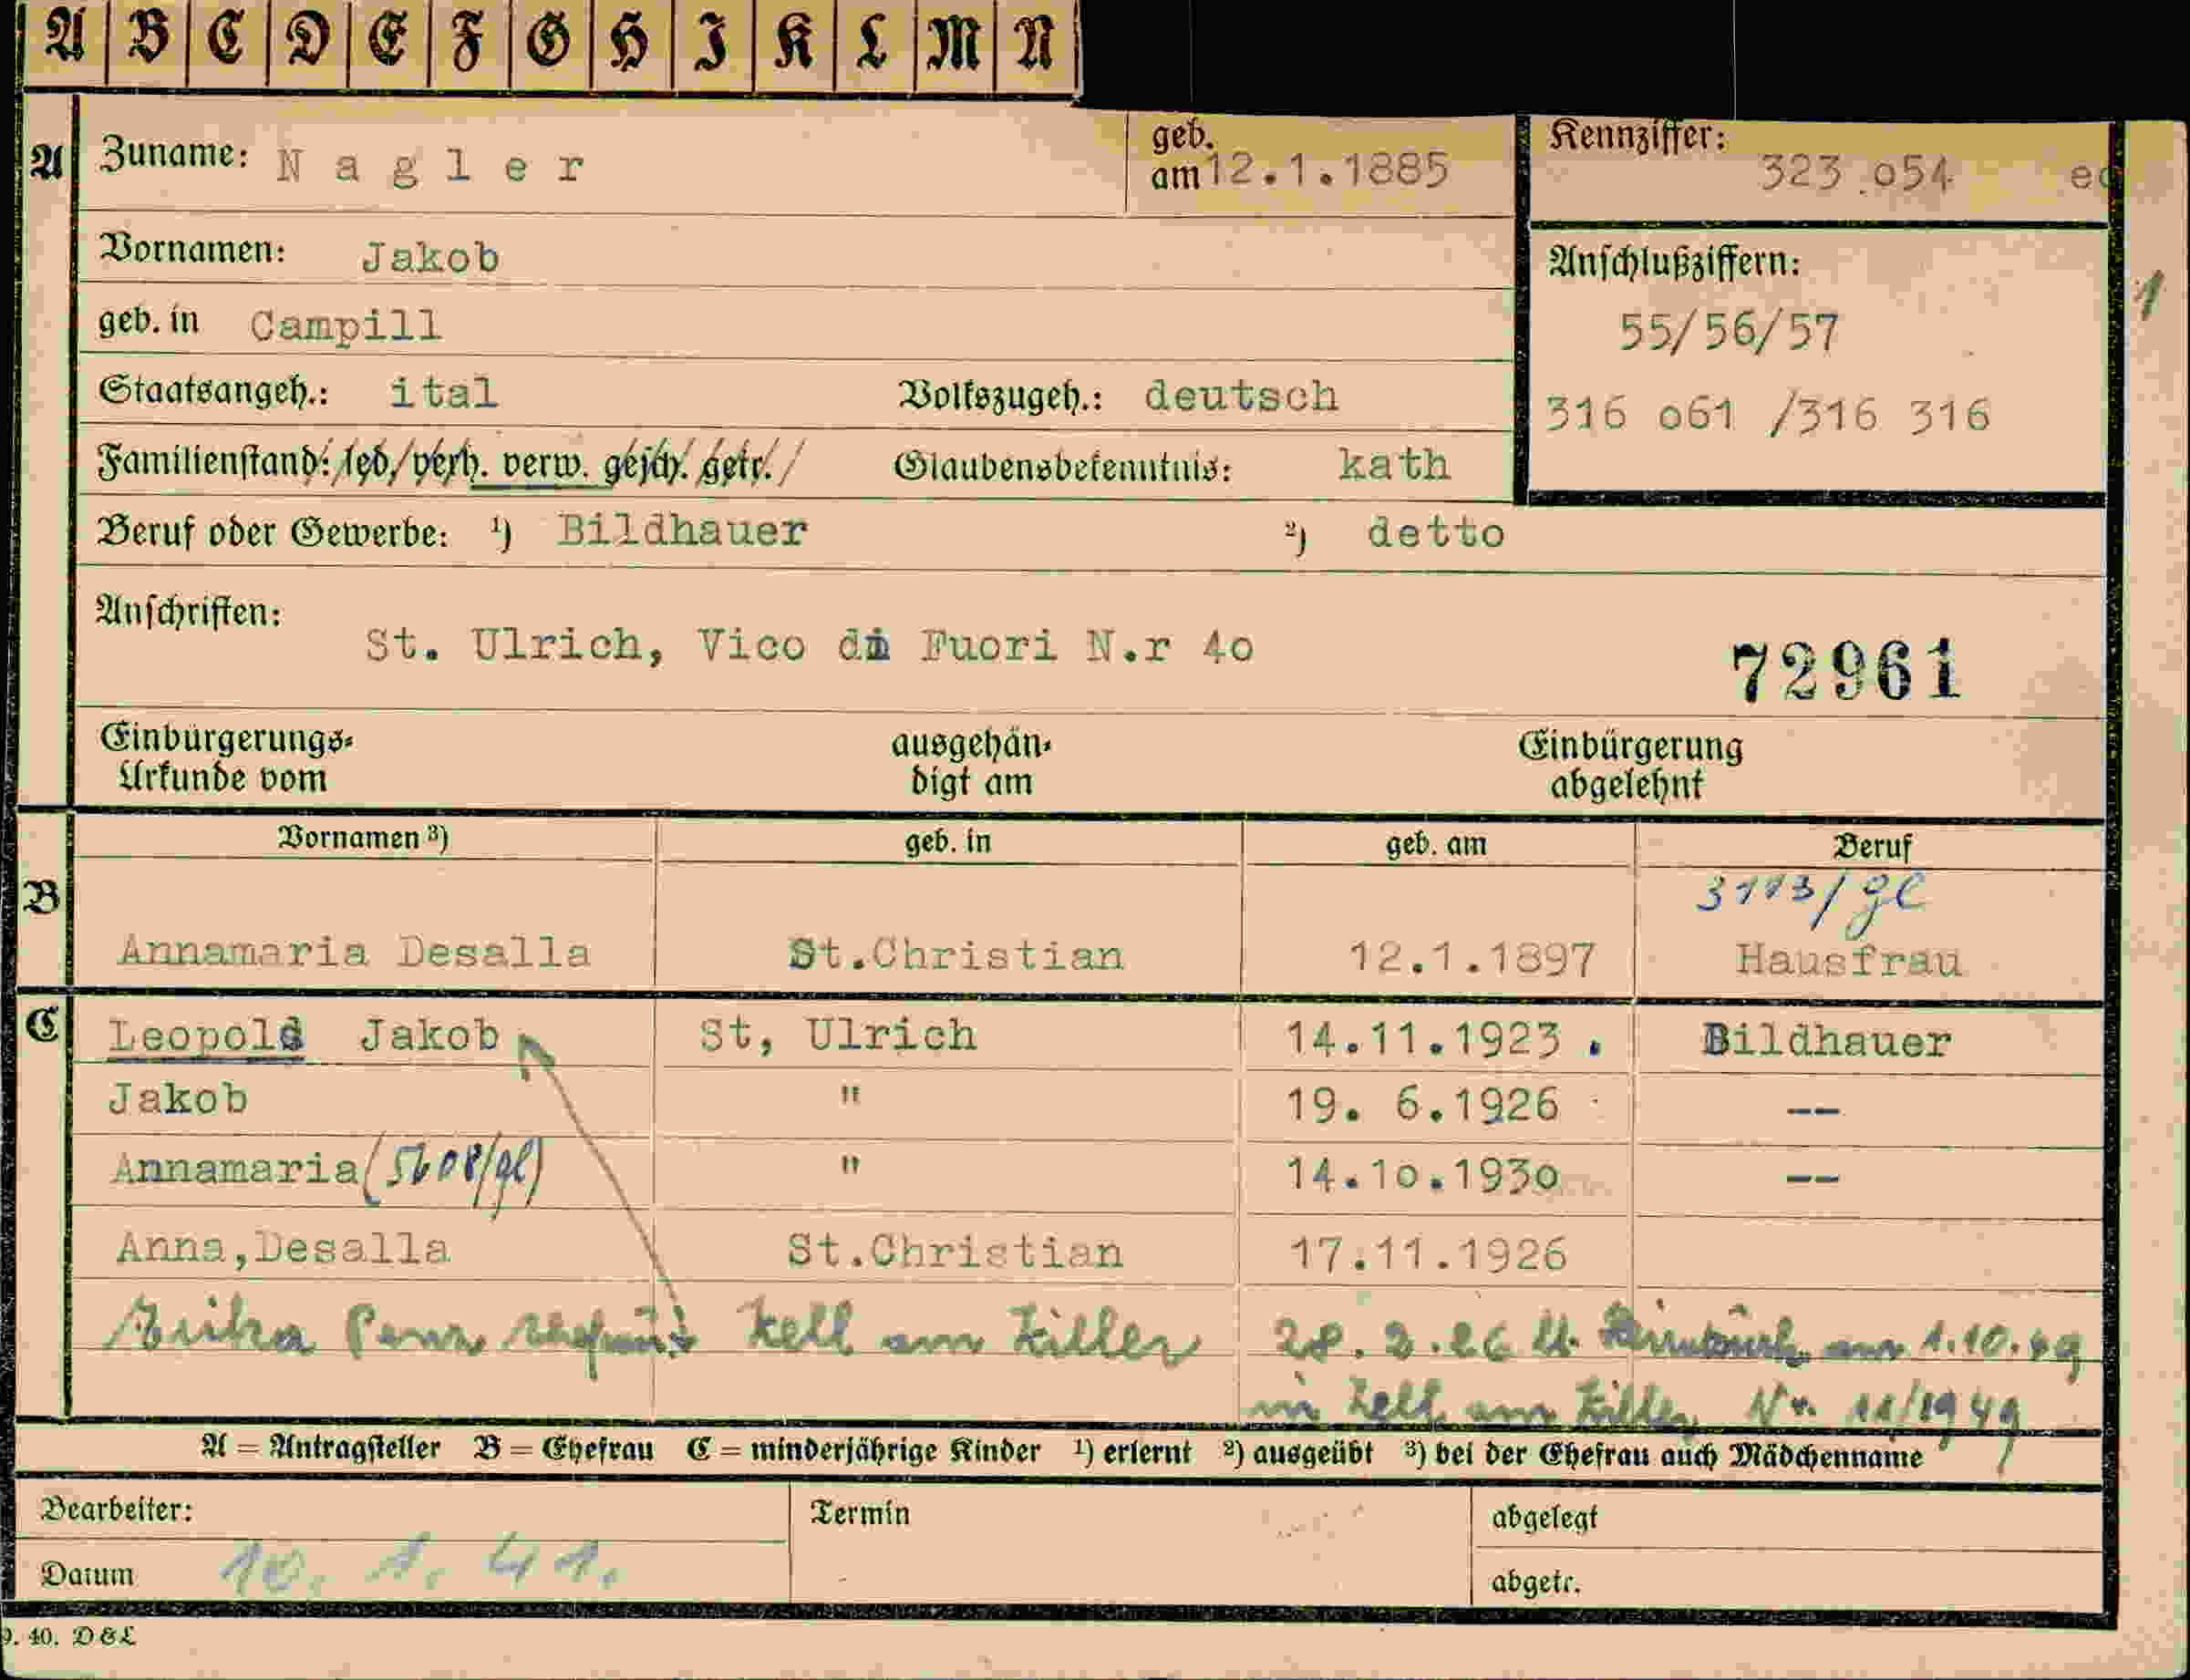 A B C D E F G H I K L M N
A
Zuname: Nagler
geb. am 12.1.1885
Kennziffer: 323.o54
Vornamen: Jakob
Anschlußziffern:
geb. in Campill
55/56/57
1
Staatsangeh.: ital Volkszugeh.: deutsch
316 o61 /316 316
Familienstand: led. verh. verw. gesch. getr. Glaubensbekenntnis: kath
Beruf oder Gewerbe: ¹) Bildhauer ²) detto
Anschriften:
St. Ulrich, Vico di Fuori N.r 4o
72961
Einbürgerungs-Urkunde vom ausgehändigt am Einbürgerung abgelehnt
B
Vornamen ³) geb. in geb. am Beruf
3113/gl
Annamaria Desalla St.Christian 12.1.1897 Hausfrau
C
Leopold Jakob St, Ulrich 14.11.1923. Bildhauer
Jakob " 19. 6.1926 --
Annamaria (5608/gl) " 14.10.193o --
Anna,Desalla St.Christian 17.11.1926
Erika Penz Zell am Ziller 28.2.26 am 1.10.49
in Zell am Ziller Nr. 11/1949
A = Antragsteller B = Ehefrau C = minderjährige Kinder ¹) erlernt ²) ausgeübt ³) bei der Ehefrau auch Mädchenname
Bearbeiter: Termin abgelegt
Datum 10. 1. 41. abgetr.
9. 40. D & L